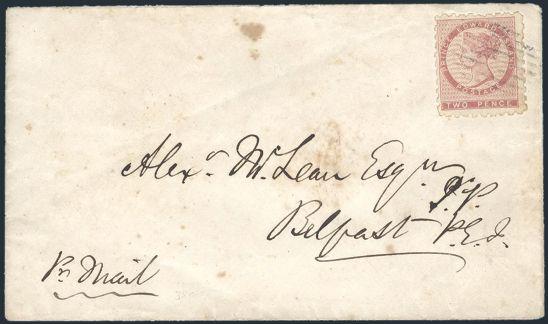 PRINCE EDWARD ISLAND
POSTAGE
TWO PENCE
Alexr McLean Esqr
J.P.
Belfast P.E.I.
Pr Mail